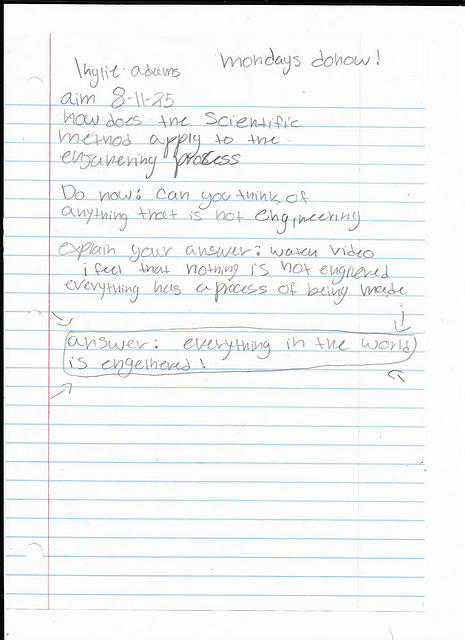 mondays donow!
Khylie adams
aim 8-11-25
how does the Scientific
method apply to the
enjanering process
Do now: Can you think of
anything that is not engineering
explain your answer: watch video
i feel that nothing is not engilered
everything has a process of being made
answer: everything in the world
is engeihered!